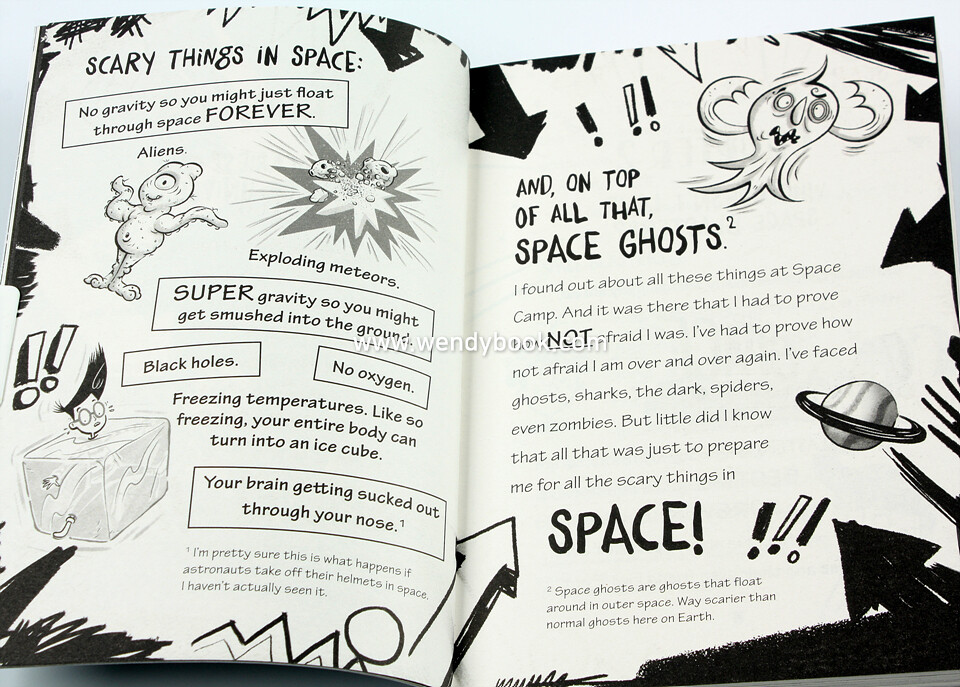 SCARY THINGS IN SPACE:
No gravity so you might just float
through space FOREVER.
Aliens.
Exploding meteors.
SUPER gravity so you might
get smushed into the ground.
Black holes.
No oxygen.
Freezing temperatures. Like so
freezing, your entire body can
turn into an ice cube.
Your brain getting sucked out
through your nose.¹
¹ I'm pretty sure this is what happens if
astronauts take off their helmets in space.
I haven't actually seen it.
!!
! !!
AND, ON TOP
OF ALL THAT,
SPACE GHOSTS.²
I found out about all these things at Space
Camp. And it was there that I had to prove
how NOT afraid I was. I've had to prove how
not afraid I am over and over again. I've faced
ghosts, sharks, the dark, spiders,
even zombies. But little did I know
that all that was just to prepare
me for all the scary things in
SPACE! !!!
² Space ghosts are ghosts that float
around in outer space. Way scarier than
normal ghosts here on Earth.
www.wendybook.com